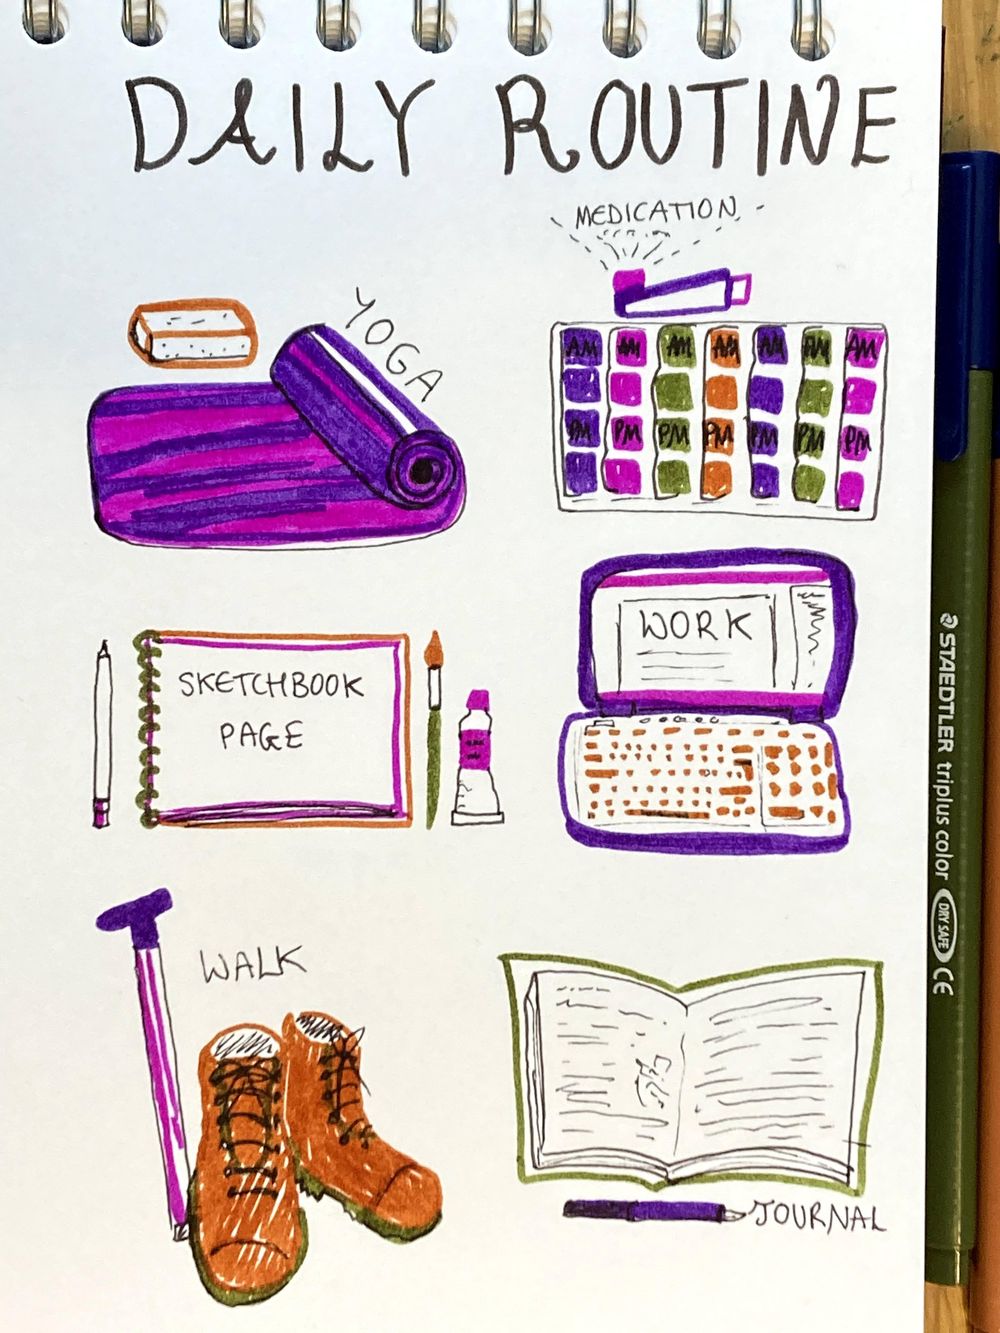 DAILY ROUTINE
MEDICATION
YOGA
AM AM AM AM AM AM AM
PM PM PM PM PM PM PM
SKETCHBOOK
PAGE
WORK
WALK
JOURNAL
STAEDTLER triplus color DRY SAFE CE